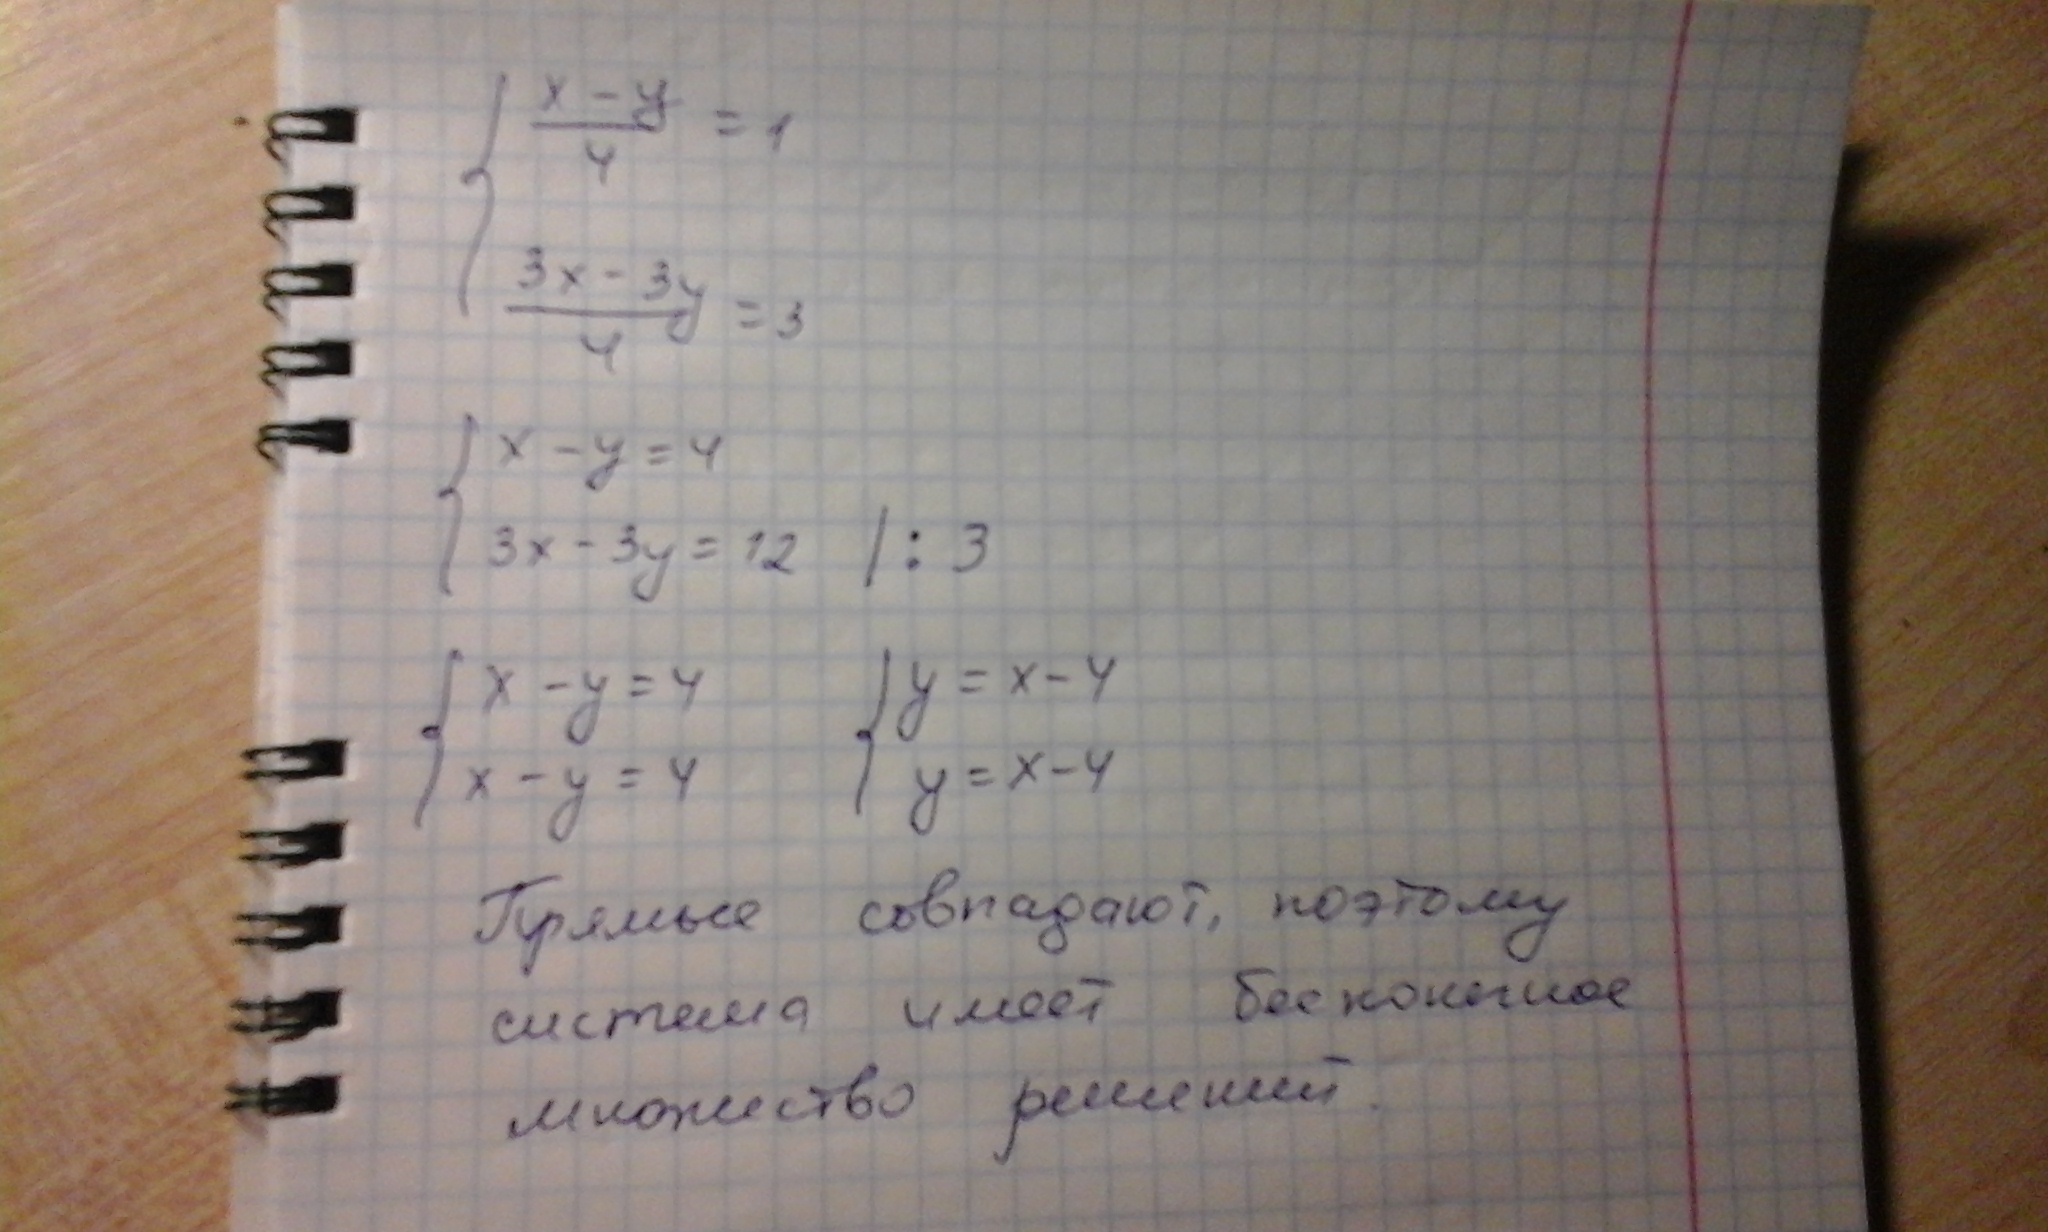 x - y
4
= 1
3x - 3y
4
= 3
x - y = 4
3x - 3y = 12 | : 3
x - y = 4 y = x - 4
x - y = 4 y = x - 4
Прямые совпадают, поэтому
система имеет бесконечное
множество решений.